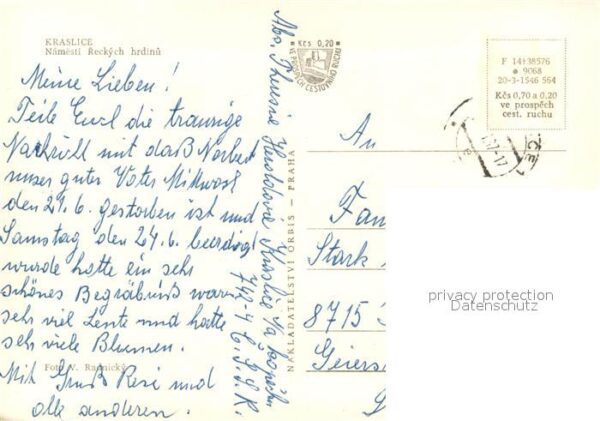 KRASLICE
Náměstí Řeckých hrdinů
Meine Lieben!
Teile Euch die traurige
Nachricht mit daß Norbert
unser guter Vater Mittwoch
den 21.6. gestorben ist und
Samstag den 24.6. beerdigt
wurde hatte ein sehr
schönes Begräbniß waren
sehr viel Leute und hatte
sehr viele Blumen.
Foto V. Radnický
Mit Gruß Resi und
alle anderen.
Abs. Heroldova Kraslice
742-4 Č.S.S.R.
NAKLADATELSTVÍ ORBIS — PRAHA
Kčs 0,20
VE PROSPĚCH CESTOVNÍHO RUCHU
F 14138576
9068
20-3-1546 564
Kčs 0,70 a 0,20
ve prospěch
cest. ruchu
An
Fam
Stark
8715
Geiers
privacy protection
Datenschutz